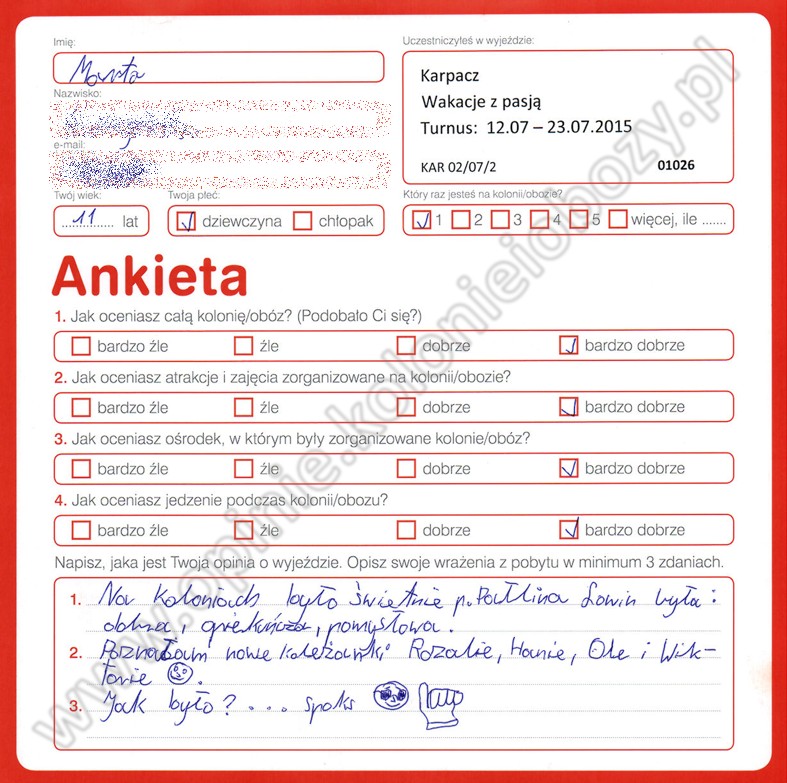 Imię:
Marta
Nazwisko:
e-mail:
Twój wiek:
11 lat
Twoja płeć:
dziewczyna chłopak
Uczestniczyłeś w wyjeździe:
Karpacz
Wakacje z pasją
Turnus: 12.07 – 23.07.2015
KAR 02/07/2 01026
Który raz jesteś na kolonii/obozie?
1 2 3 4 5 więcej, ile .......
Ankieta
1. Jak oceniasz całą kolonię/obóz? (Podobało Ci się?)
bardzo źle źle dobrze bardzo dobrze
2. Jak oceniasz atrakcje i zajęcia zorganizowane na kolonii/obozie?
bardzo źle źle dobrze bardzo dobrze
3. Jak oceniasz ośrodek, w którym były zorganizowane kolonie/obóz?
bardzo źle źle dobrze bardzo dobrze
4. Jak oceniasz jedzenie podczas kolonii/obozu?
bardzo źle źle dobrze bardzo dobrze
Napisz, jaka jest Twoja opinia o wyjeździe. Opisz swoje wrażenia z pobytu w minimum 3 zdaniach.
1. Na koloniach było świetnie p. Paulina była:
i opiekuńcza, pomysłowa.
2. Poznałam nowe koleżanki Rozalie, Hanie, Ole i Wik-
torie
3. Jak było? ... spoks
www.opinie.kolonieiobozy.pl